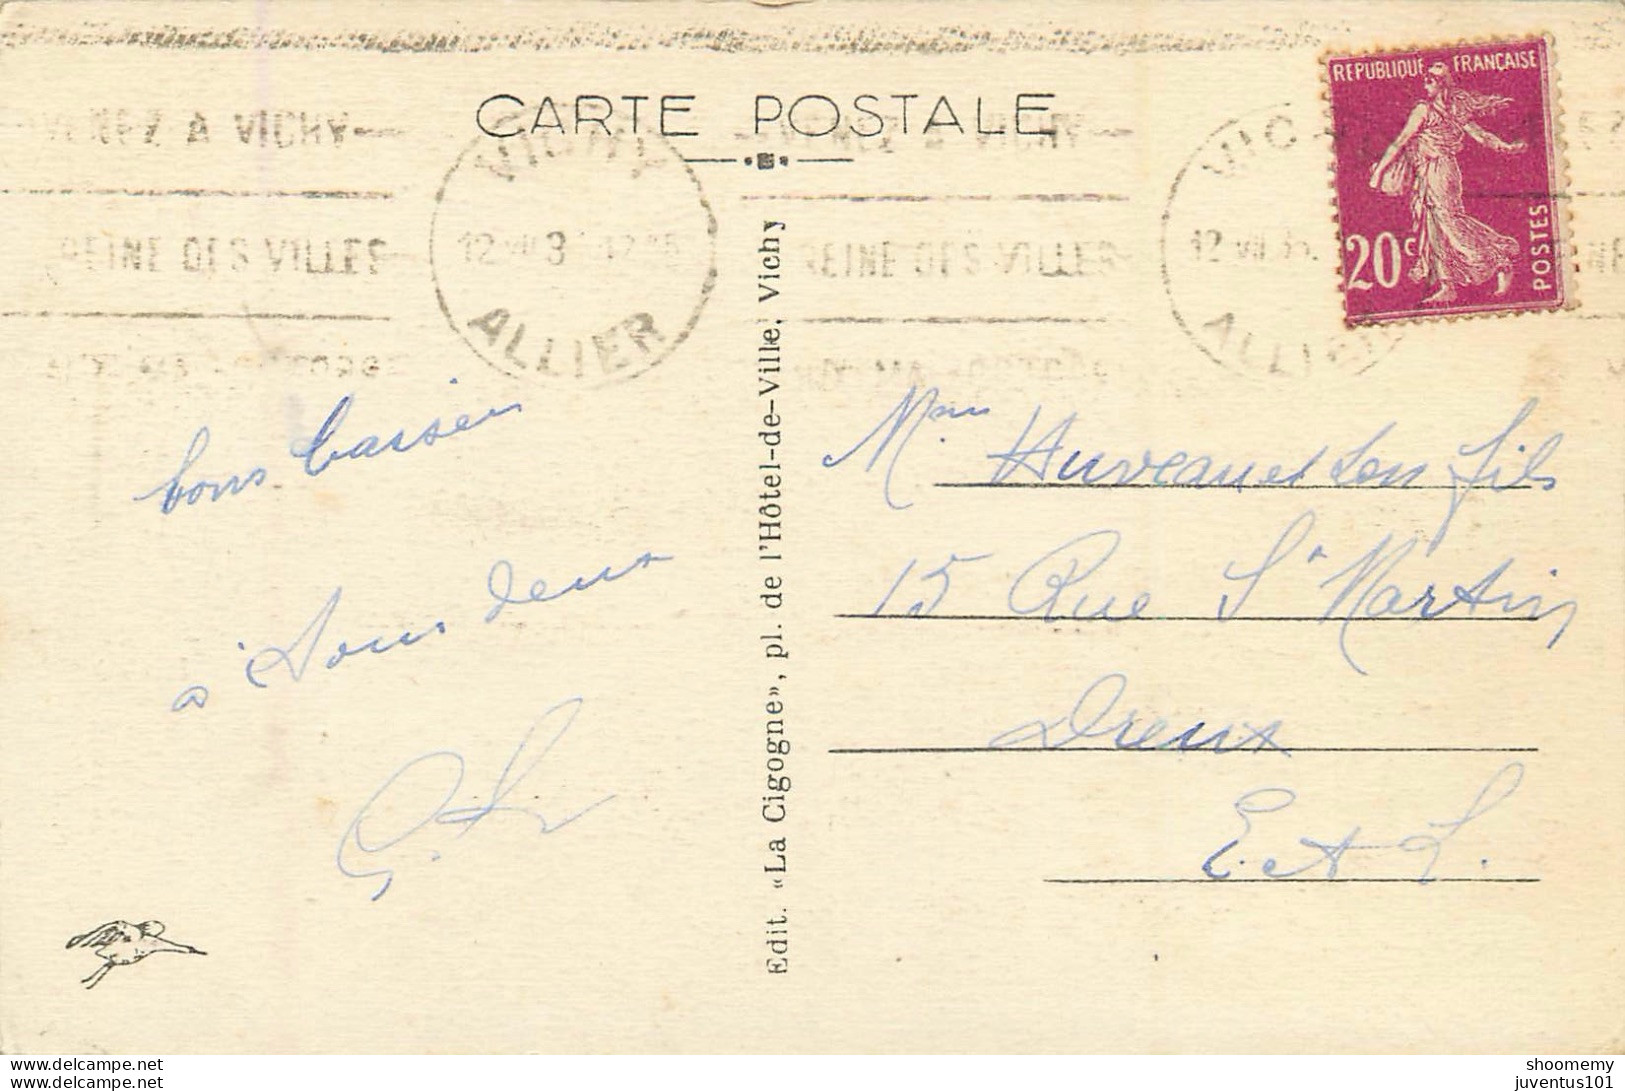 CARTE POSTALE
REPUBLIQUE FRANÇAISE
20c
POSTES
VENEZ A VICHY
REINE DES VILLES
VICHY
12 VII 3
ALLIER
VENEZ A VICHY
REINE DES VILLES
VICHY
12 VII 35
ALLIER
bons baisers
à tous deux
Edit. «La Cigogne», pl. de l'Hôtel-de-Ville, Vichy
Mme Auveau et son fils
15 Rue St Martin
Dreux
E. et L.
delcampe.net
delcampe.net
shoomemy
juventus101